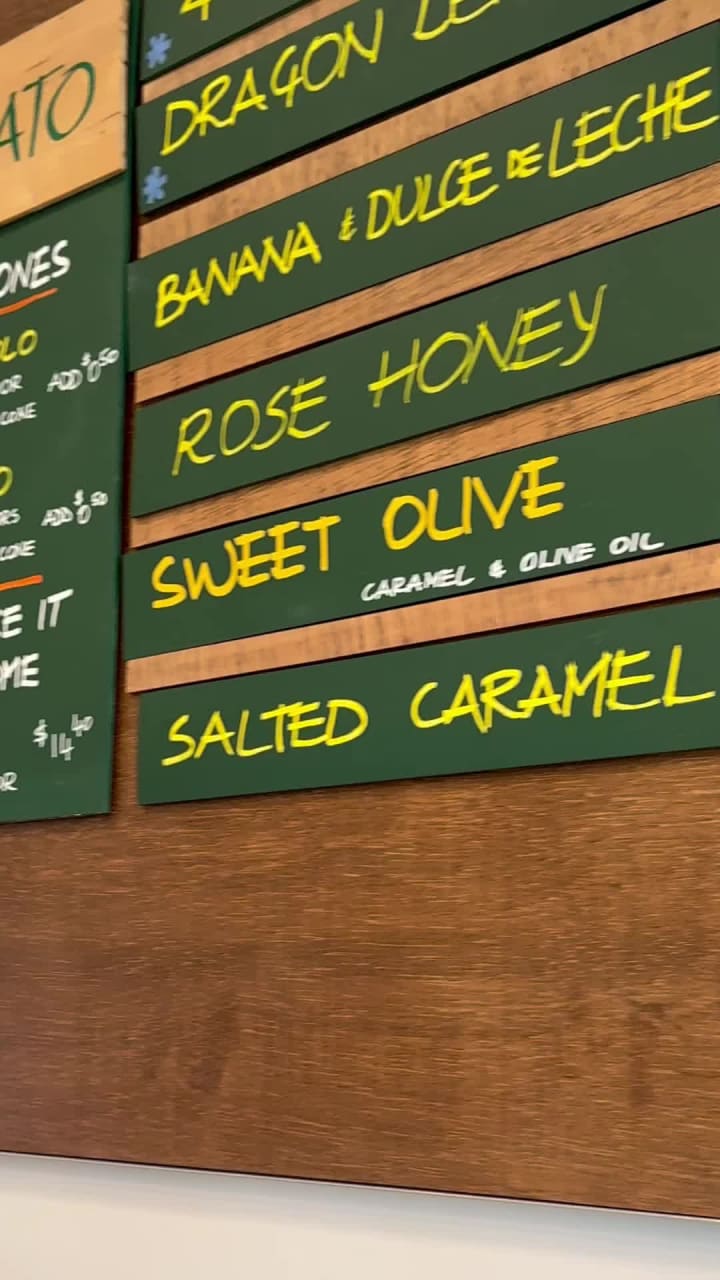 DRAGON
BANANA & DULCE DE LECHE
ROSE HONEY
SWEET OLIVE
CARAMEL & OLIVE OIL
SALTED CARAMEL
ATO
ONES
OLO
OR ADD $0.50
CONE
O
RS ADD $0.50
CONE
E IT
ME
$14.40
OR